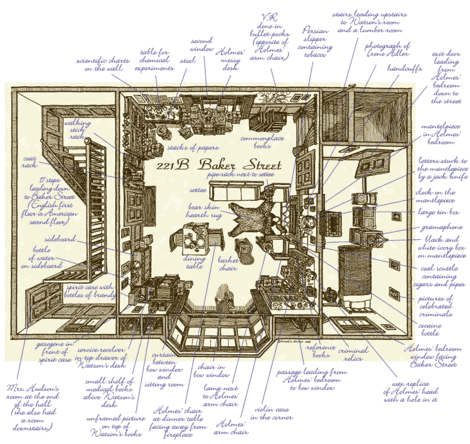 stairs leading upstairs
to Watson's room
and a lumber room
V.R.
done in
bullet-pocks
(opposite of
Holmes'
arm chair)
Persian
slipper
containing
tobacco
photograph of
Irene Adler
handcuffs
exit door
leading
from
Holmes'
bedroom
down to
the street
second
window
Holmes'
messy
desk
table for
chemical
experiments
stool
scientific charts
on the wall
walking
stick
rack
stacks of papers
commonplace
books
mantelpiece
in Holmes'
bedroom
coat
rack
221B Baker Street
pipe rack next to settee
settee
letters stuck to
the mantelpiece
by a jack knife
17 steps
leading down
to Baker Street
(English first
floor is American
second floor)
bear skin
hearth rug
clock on the
mantelpiece
large tin box
gramophone
black and
white ivory box
on mantelpiece
sideboard
bottle
of water
on sideboard
dining
table
basket
chair
coal scuttle
containing
cigars and pipes
spirit case with
bottles of brandy
pictures of
celebrated
criminals
cocaine
bottle
gasogene in
front of
spirit case
service revolver
in top drawer of
Watson's desk
curtain
between
bow window
and
sitting room
chair in
bow window
reference
books
criminal
relics
Holmes' bedroom
window facing
Baker Street
Mrs. Hudson's
room at the end
of the hall
(she also had
a room
downstairs)
small shelf of
medical books
above Watson's
desk
lamp next to
Holmes'
arm chair
passage leading from
Holmes' bedroom
to bow window
wax replica
of Holmes' head
with a hole in it
unframed picture
on top of
Watson's books
Holmes' chair
at dinner table
facing away from
fireplace
Holmes'
arm chair
violin case
in the corner